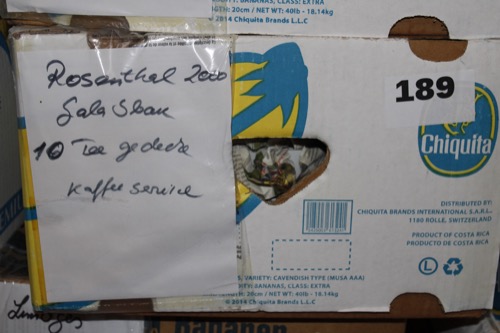 GTH: 20cm / NET WT: 40lb - 18.14kg
© 2014 Chiquita Brands L.L.C
Rosenthal 2000
Gala Sban
10 Tee gedecke
Kaffee service
189
Chiquita
DISTRIBUTED BY:
CHIQUITA BRANDS INTERNATIONAL S.A.R.L.
1180 ROLLE, SWITZERLAND
PRODUCT OF COSTA RICA
PRODUCTO DE COSTA RICA
L
S, VARIETY: CAVENDISH TYPE (MUSA AAA)
BANANAS, CLASS: EXTRA
20cm / NET WT: 40lb - 18.14kg
Chiquita Brands L.L.C
Limoges
Bananen